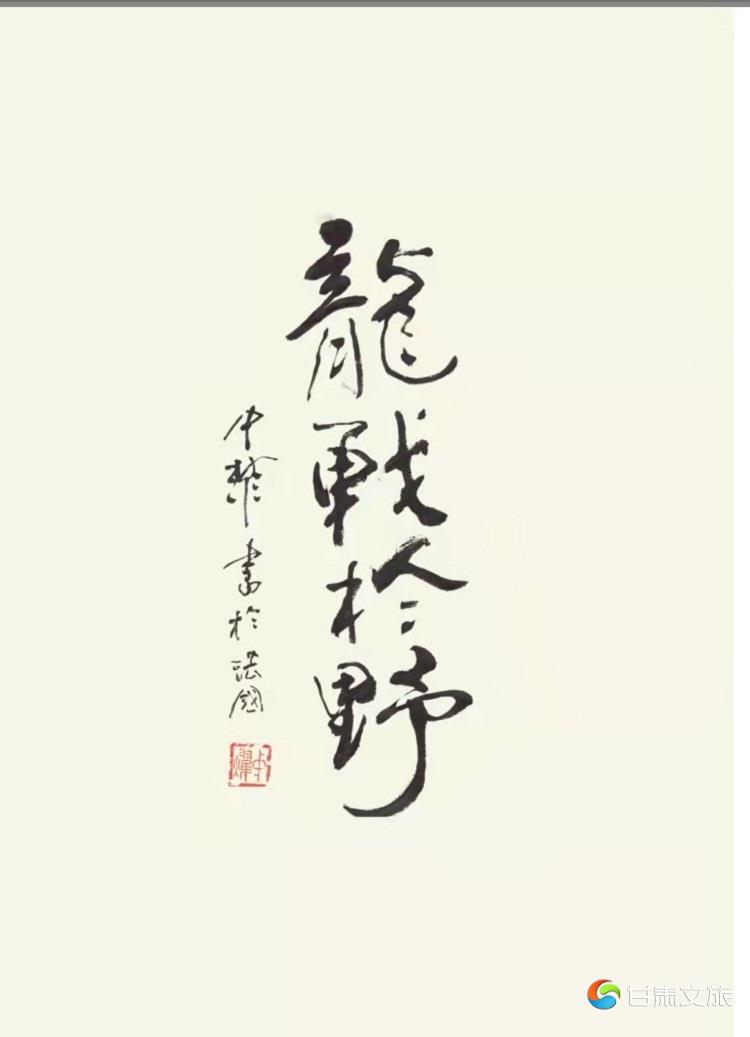 龍戰於野
書於法國
甘肃文旅